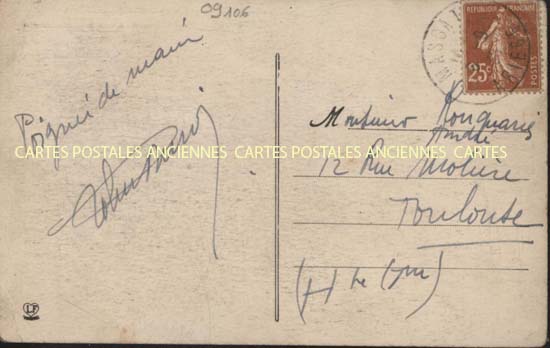 09106
MASSAT
REPUBLIQUE FRANÇAISE
25c
POSTES
Poignée de main
Monsieur Rouquairis
André
CARTES POSTALES ANCIENNES CARTES POSTALES ANCIENNES CARTES
12 Rue Molière
Toulouse
(Hte Gne)